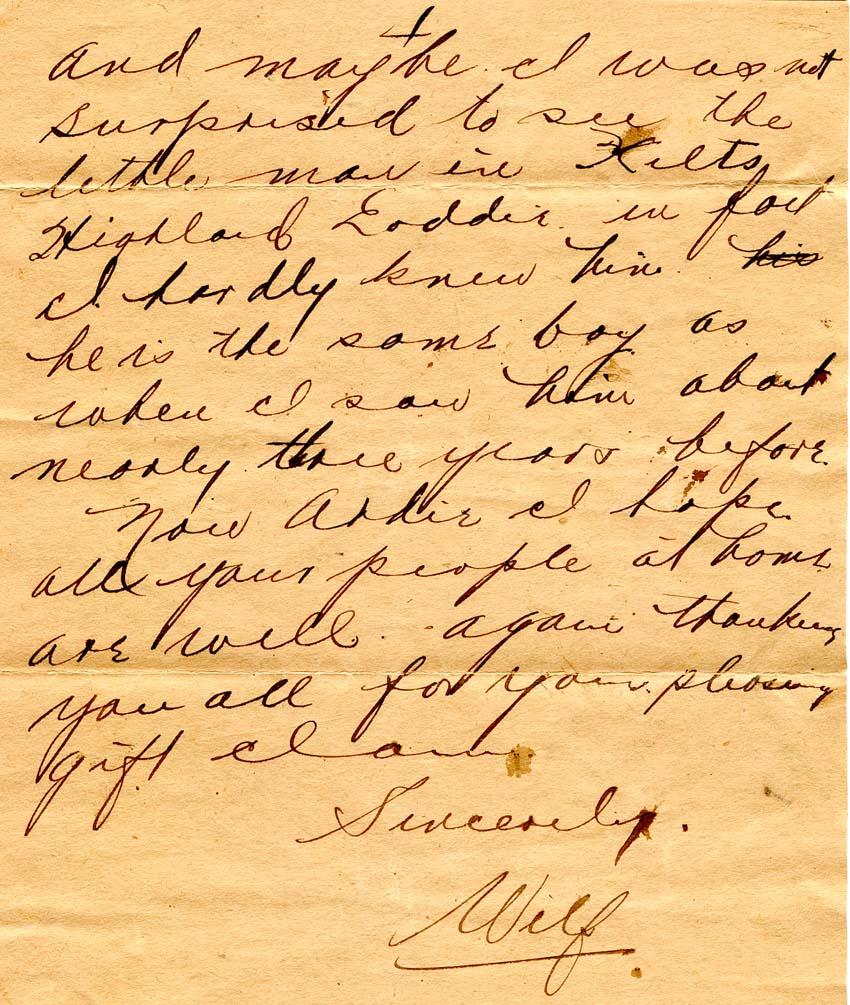 4
and maybe I was not
surprised to see the
little man in Kilts,
Highland Loddie in fact
I hardly knew him. his
he is the same boy as
when I saw him about
nearly three years before.
Now Ardie I hope
all your people at home
are well. again thanking
you all for your pleasing
gift I am
Sincerely.
Wilf